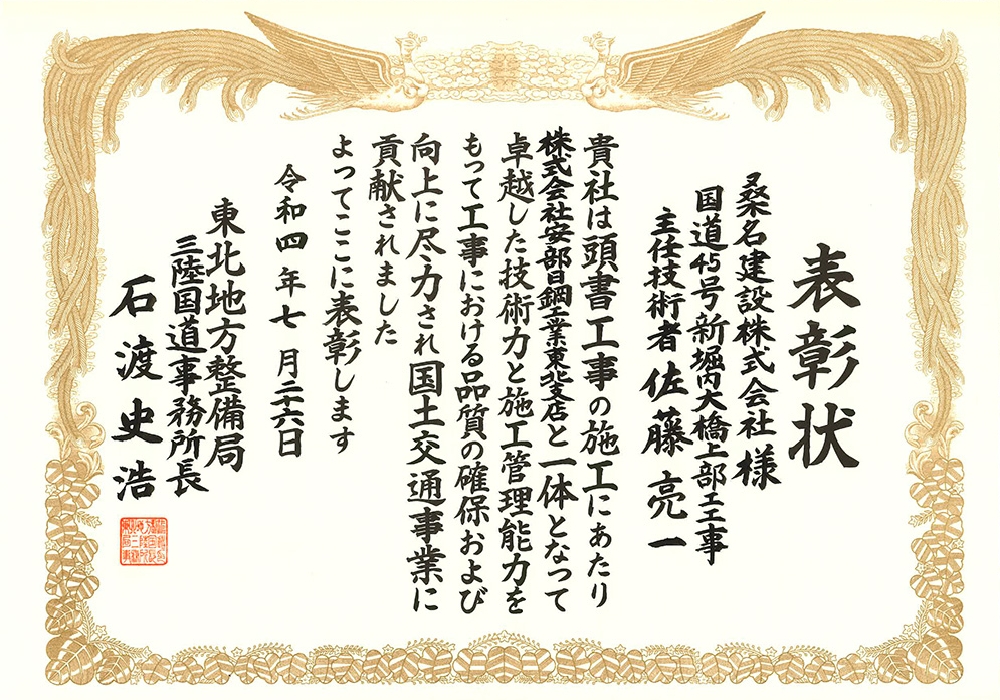 表彰状
桑名建設株式会社様
国道45号新堀内大橋上部工工事
主任技術者 佐藤亮一
貴社は頭書工事の施工にあたり
株式会社安部日鋼工業東北支店と一体となって
卓越した技術力と施工管理能力を
もって工事における品質の確保および
向上に尽力され国土交通事業に
貢献されました
よってここに表彰します
令和四年七月二十六日
東北地方整備局
三陸国道事務所長
石渡史浩